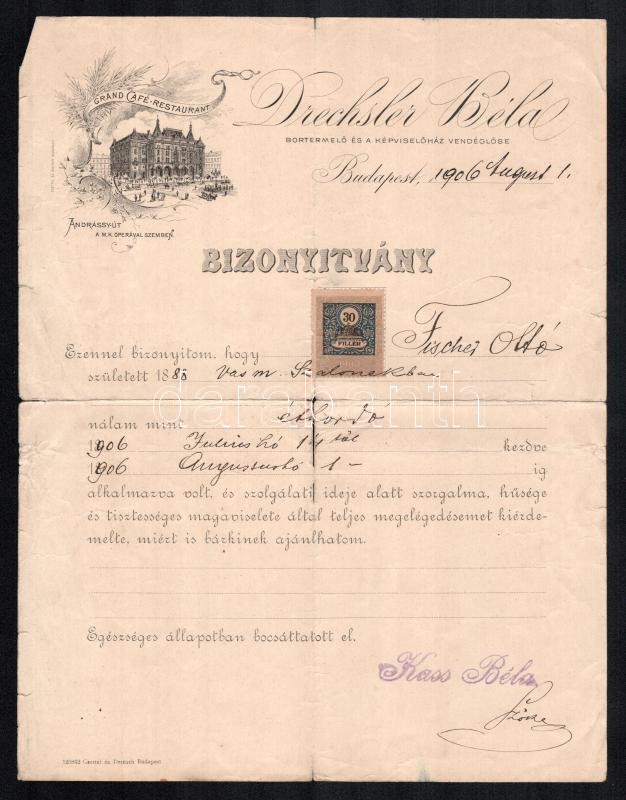 GRAND CAFÉ-RESTAURANT
Drechsler Béla
BORTERMELŐ ÉS A KÉPVISELŐHÁZ VENDÉGLŐSE
Budapest, 1906 August 1.
ANDRÁSSY-ÚT
A M.K. OPERÁVAL SZEMBEN.
BIZONYITVÁNY
30
FILLÉR
Fischer Ottó
Ezennel bizonyitom, hogy
született 1888 Vas m. Szalonakban
darabanth
nálam mint ethordó
1906 Julius hó 14 től kezdve
1906 Augusztushó 1- ig
alkalmazva volt, és szolgálati ideje alatt szorgalma, hűsége
és tisztességes magaviselete által teljes megelégedésemet kiérde-
melte, miért is bárkinek ajánlhatom.
Egészséges állapotban bocsáttatott el.
Kass Béla
Czettel és Deutsch Budapest